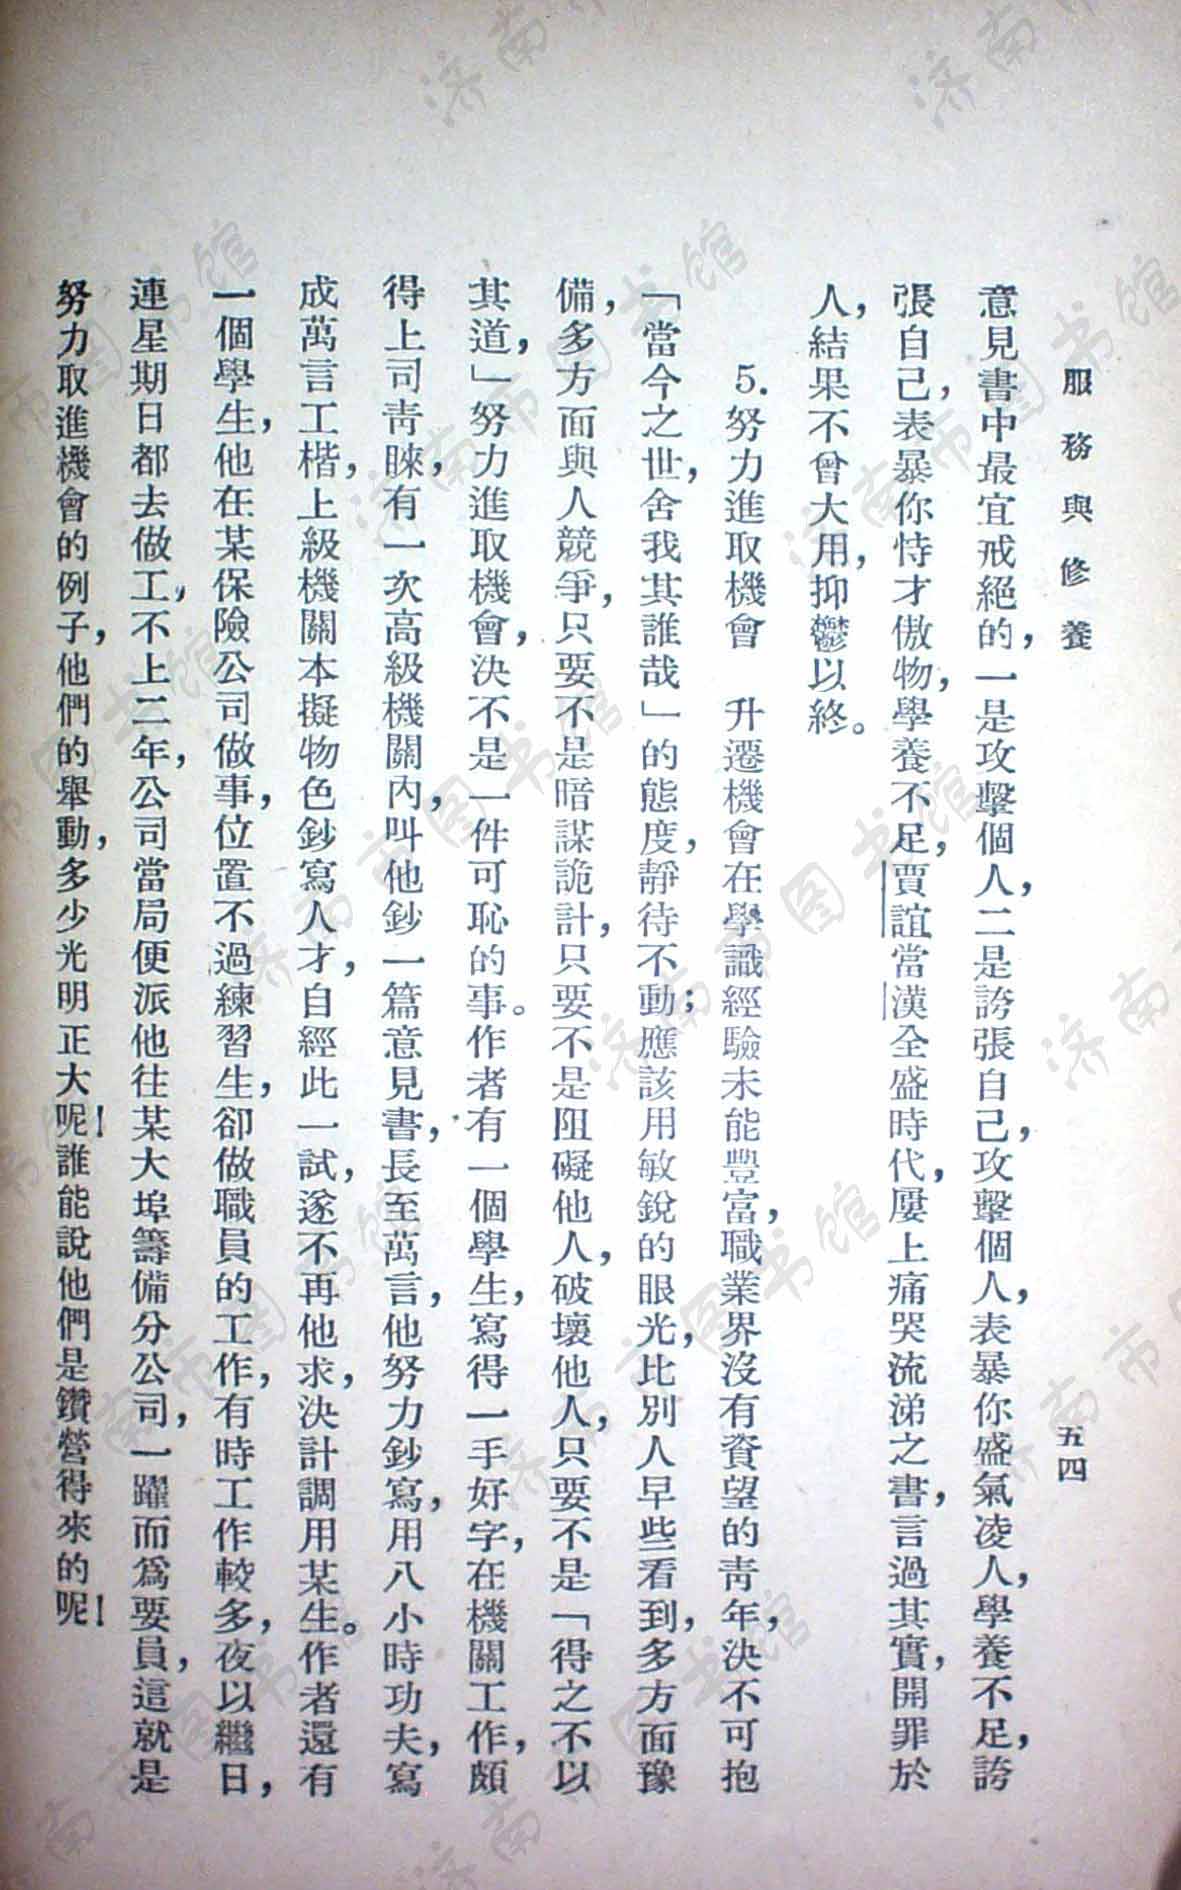 服務與修養
五四
意見書中最宜戒絕的，一是攻擊個人，二是誇張自己，攻擊個人，表暴你盛氣凌人，學養不足，誇
張自己，表暴你恃才傲物，學養不足，賈誼當漢全盛時代，屢上痛哭流涕之書，言過其實，開罪於
人，結果不曾大用，抑鬱以終。
5. 努力進取機會　升遷機會在學識經驗未能豐富，職業界沒有資望的青年，決不可抱
「當今之世，舍我其誰哉」的態度，靜待不動；應該用敏銳的眼光，比別人早些看到，多方面豫
備，多方面與人競爭，只要不是暗謀詭計，只要不是阻礙他人，破壞他人，只要不是「得之不以
其道，」努力進取機會，決不是一件可恥的事。作者有一個學生，寫得一手好字，在機關工作，頗
得上司青睞，有一次高級機關內，叫他鈔一篇意見書，長至萬言，他努力鈔寫，用八小時功夫，寫
成萬言工楷，上級機關本擬物色鈔寫人才，自經此一試，遂不再他求，決計調用某生。作者還有
一個學生，他在某保險公司做事，位置不過練習生，卻做職員的工作，有時工作較多，夜以繼日，
連星期日都去做工，不上二年，公司當局便派他往某大埠籌備分公司，一躍而爲要員，這就是
努力取進機會的例子，他們的舉動，多少光明正大呢！誰能說他們是鑽營得來的呢！
济南市图书馆